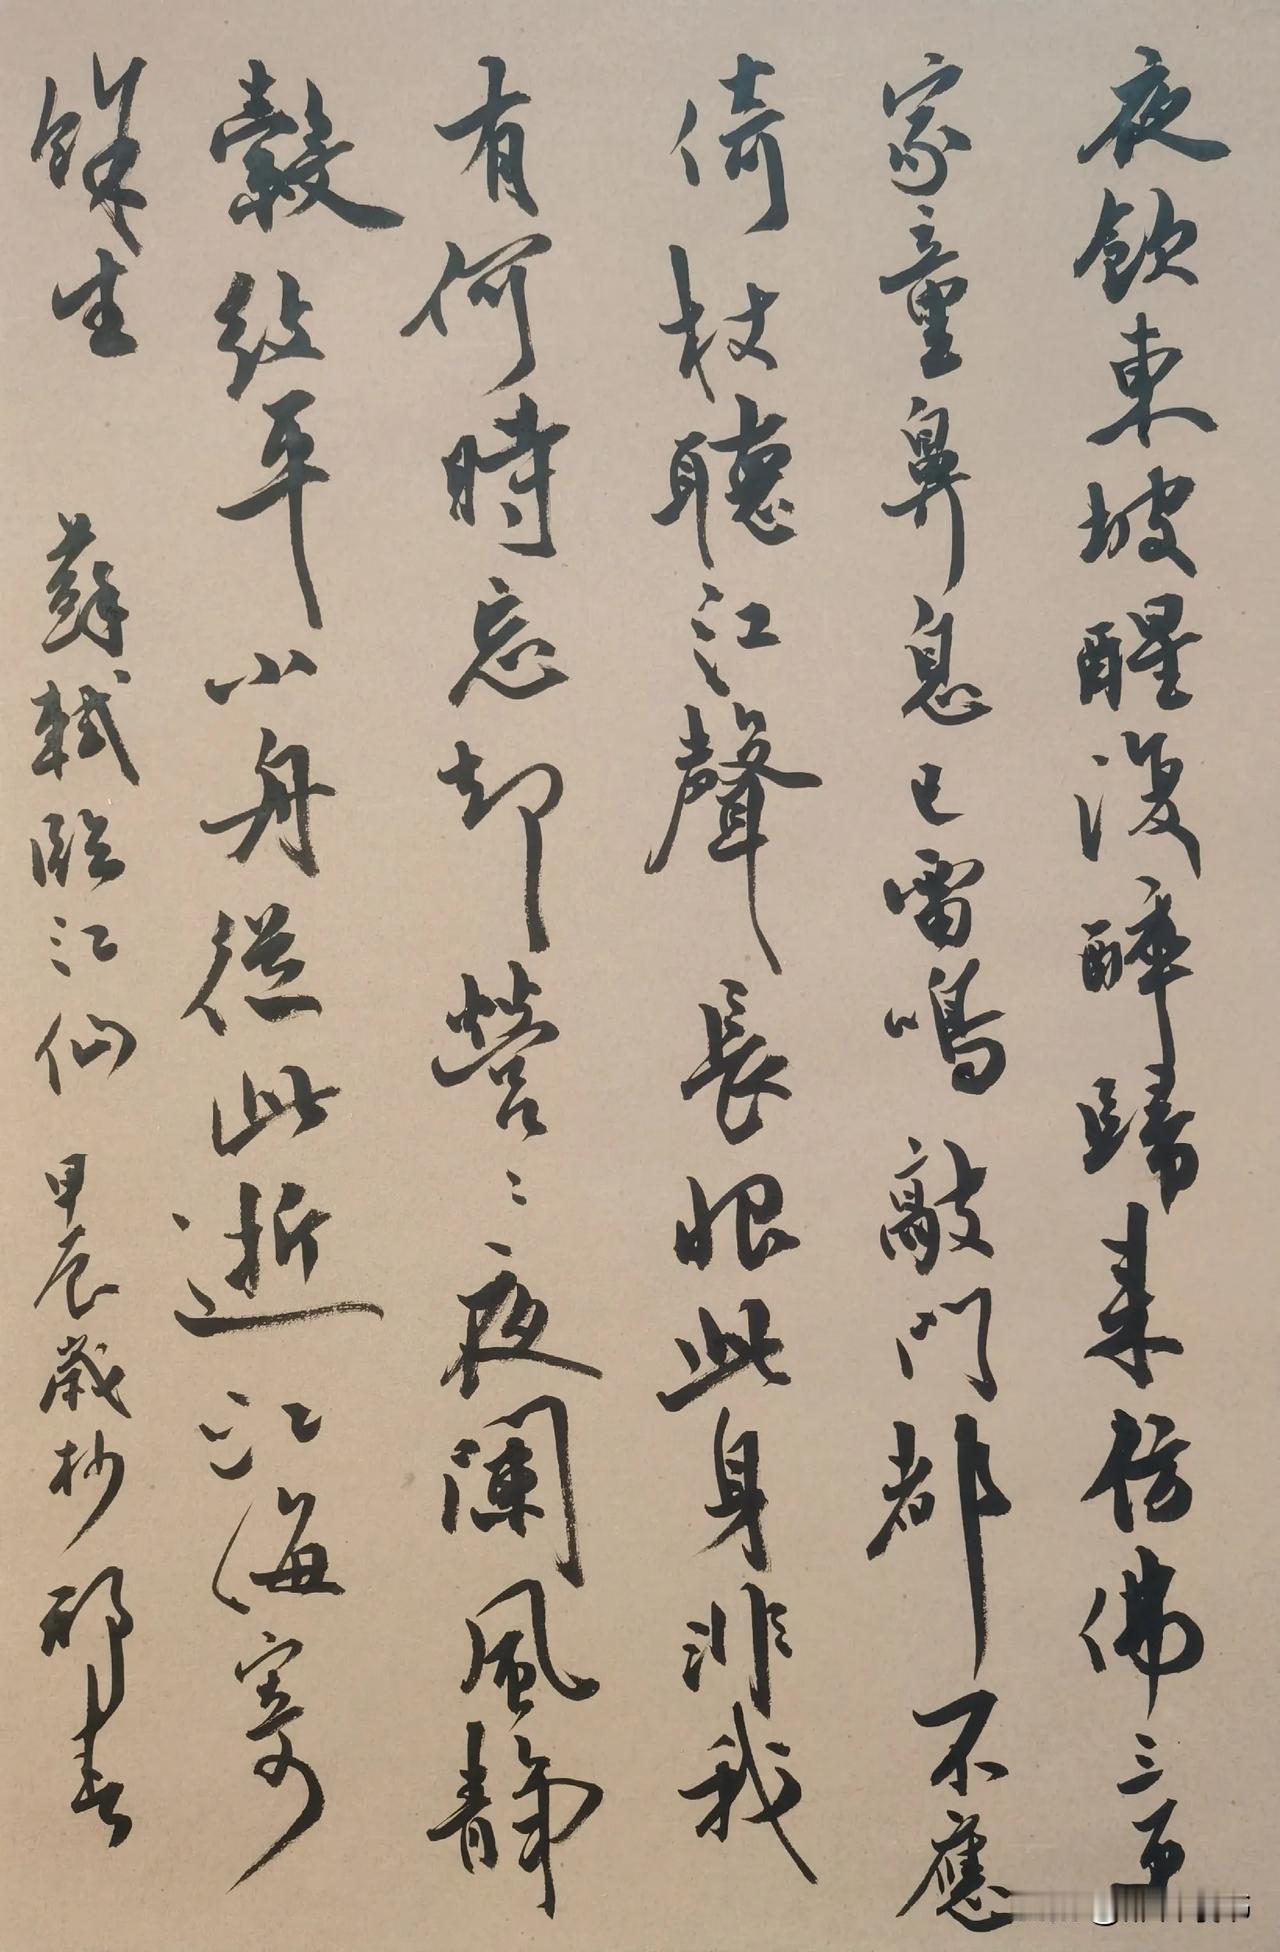 夜飲東坡醒復醉歸来仿佛三更
家童鼻息已雷鳴敲門都不應
倚杖聽江聲長恨此身非我
有何時忘却營〻夜闌風静
縠紋平小舟從此逝江海寄
餘生 蘇軾臨江仙 甲辰歲杪